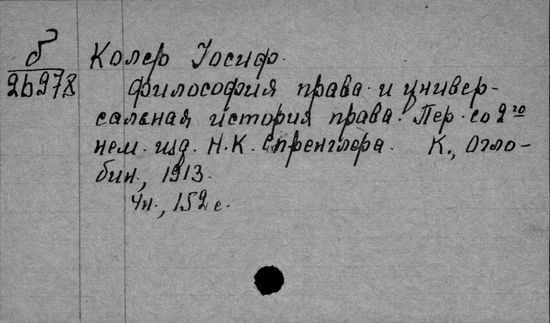 б Колер Іосиф.
26978 Философия права и универ-
сальная история права. Пер. со 2го
нем. изд. Н.К. Спренглера. К., Огло-
бин, 1913.
4н., 152 с.